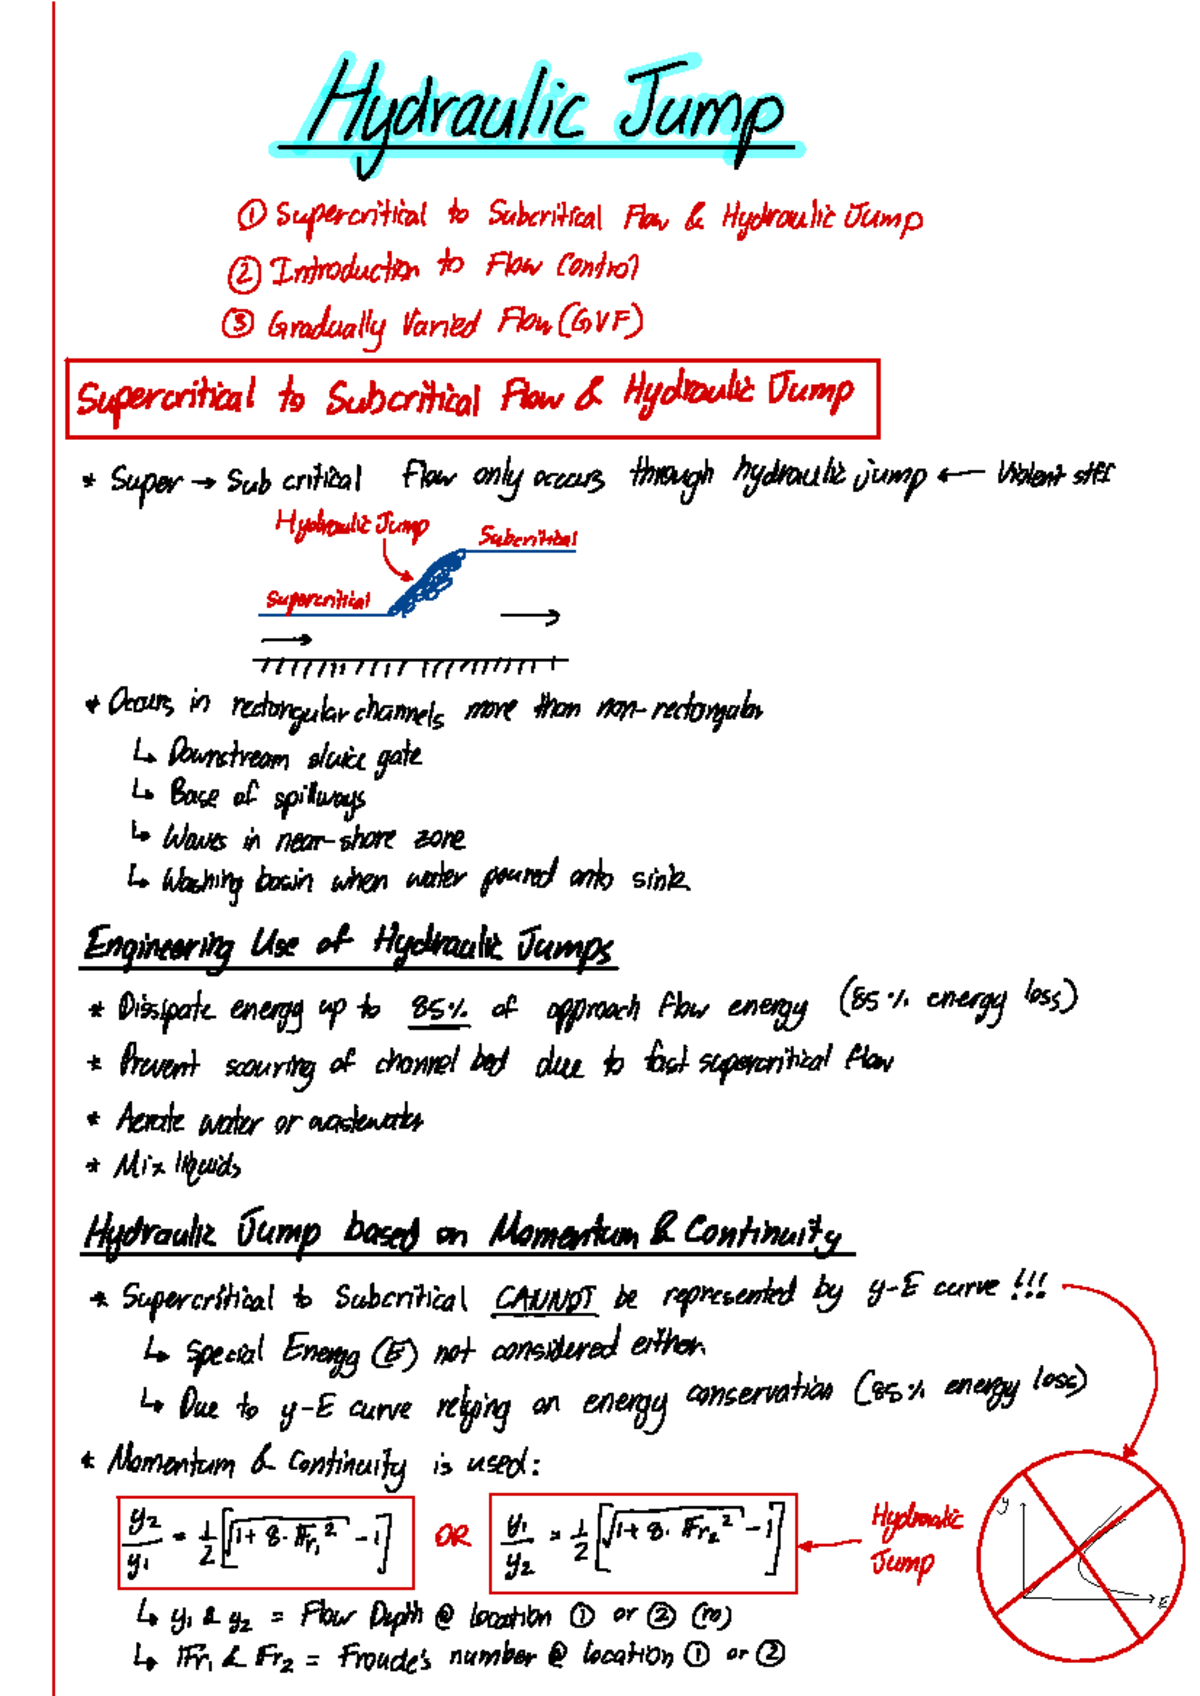 Hydraulic Jump
① Supercritical to Subcritical Flow & Hydraulic Jump
② Introduction to Flow Control
③ Gradually Varied Flow (GVF)
Supercritical to Subcritical Flow & Hydraulic Jump
* Super → Sub critical Flow only occurs through hydraulic jump ← Violent stff
Hydraulic Jump
Subcritical
Supercritical
* Occurs in rectangular channels more than non-rectangular
↳ Downstream sluice gate
↳ Base of spillways
↳ Waves in near-shore zone
↳ Washing basin when water poured onto sink
Engineering Use of Hydraulic Jumps
* Dissipate energy up to 85% of approach flow energy (85% energy loss)
* Prevent scouring of channel bed due to fast supercritical flow
* Aerate water or wastewater
* Mix liquids
Hydraulic Jump based on Momentum & Continuity
* Supercritical to Subcritical CANNOT be represented by y-E curve !!!
↳ Special Energy (E) not considered either
↳ Due to y-E curve relying on energy conservation (85% energy loss)
* Momentum & Continuity is used:
y₂/y₁ = 1/2 [√(1 + 8·Fr₁²) - 1] OR y₁/y₂ = 1/2 [√(1 + 8·Fr₂²) - 1] ← Hydraulic Jump
y E
↳ y₁ & y₂ = Flow Depth @ location ① or ② (m)
↳ Fr₁ & Fr₂ = Froude's number @ location ① or ②